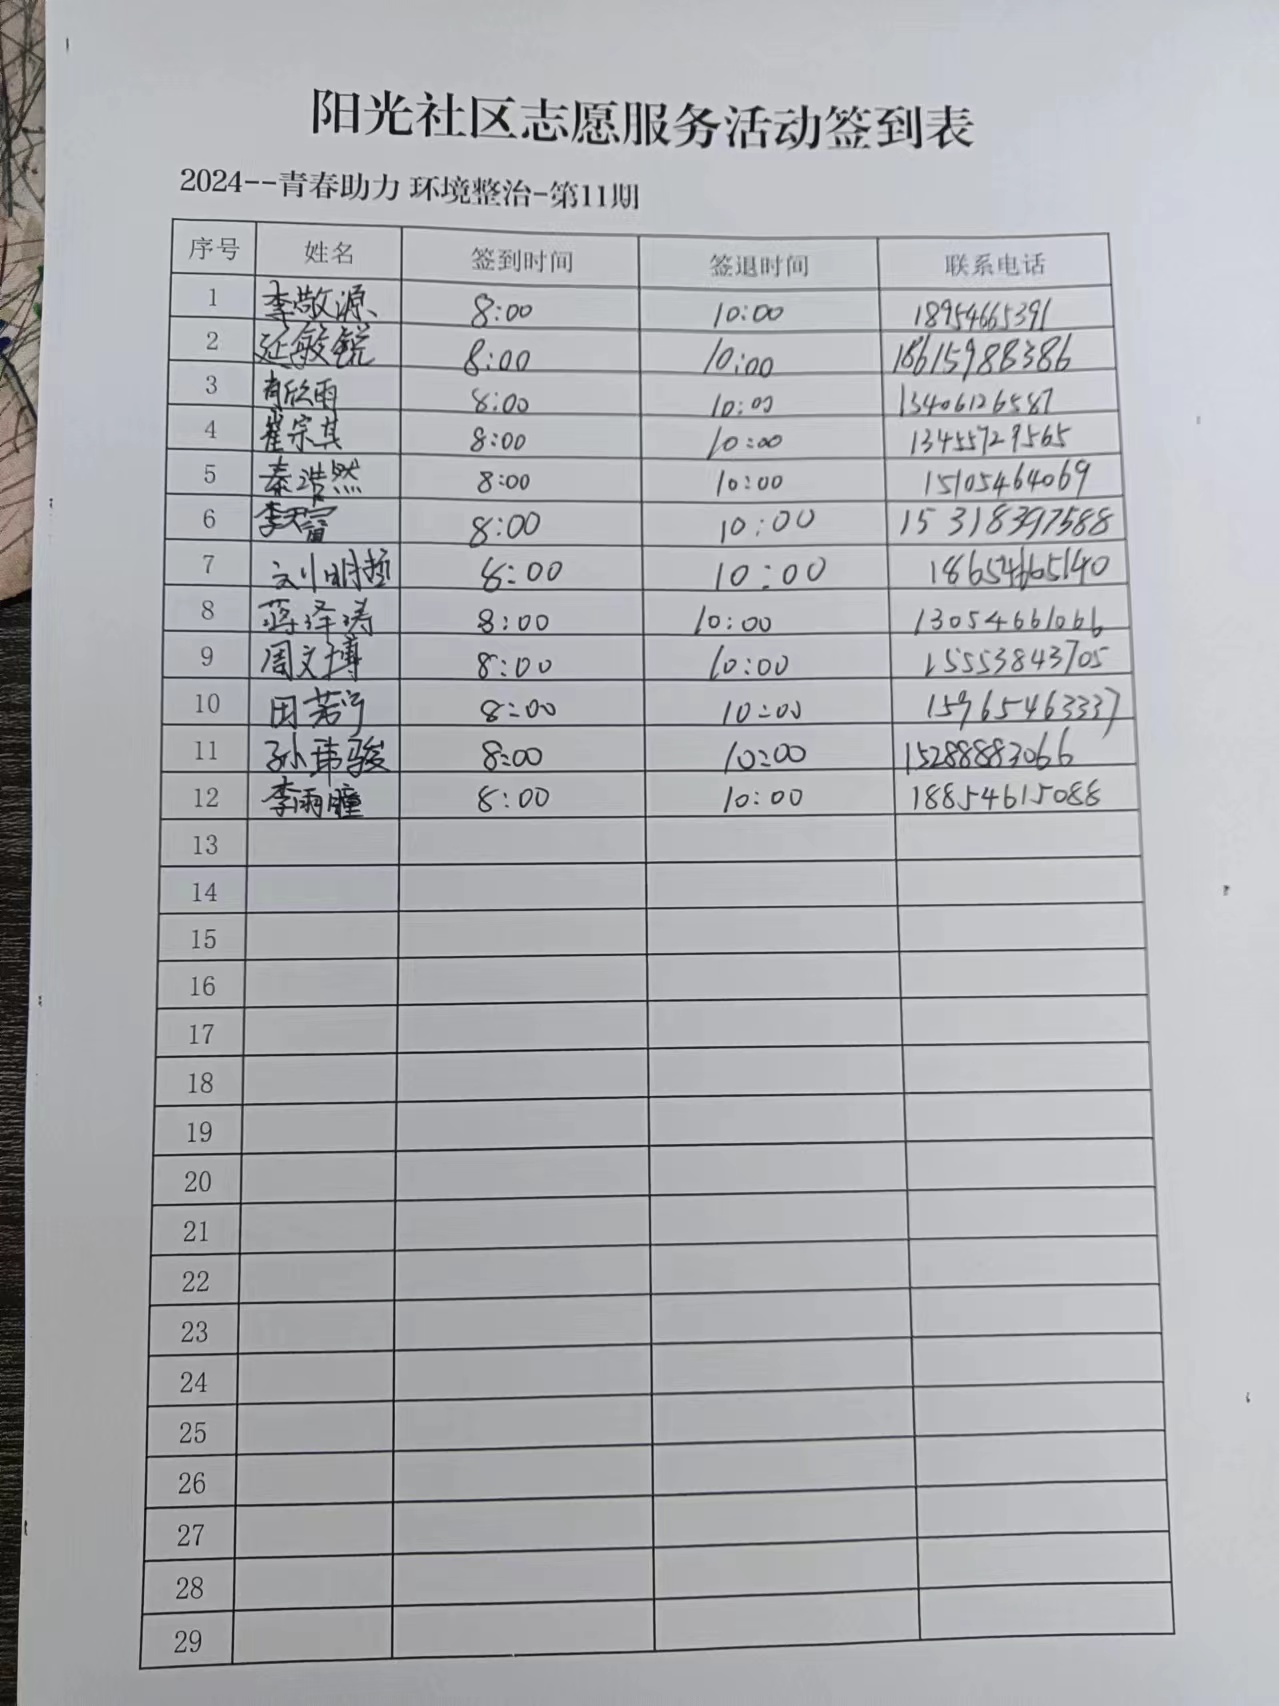 阳光社区志愿服务活动签到表
2024--青春助力 环境整治-第11期
序号 姓名 签到时间 签退时间 联系电话
1 李敬源 8:00 10:00 18954665391
2 延敏锐 8:00 10:00 18615988386
3 肖欣雨 8:00 10:00 13406126587
4 崔宗其 8:00 10:00 13455729565
5 秦浩然 8:00 10:00 15105464069
6 李天富 8:00 10:00 15318397588
7 刘明哲 8:00 10:00 18654665140
8 蒋泽涛 8:00 10:00 13054661066
9 周文博 8:00 10:00 15553843705
10 田若宁 8:00 10:00 15965463337
11 孙玮骏 8:00 10:00 15288883066
12 李雨瞳 8:00 10:00 18854615088
13
14
15
16
17
18
19
20
21
22
23
24
25
26
27
28
29